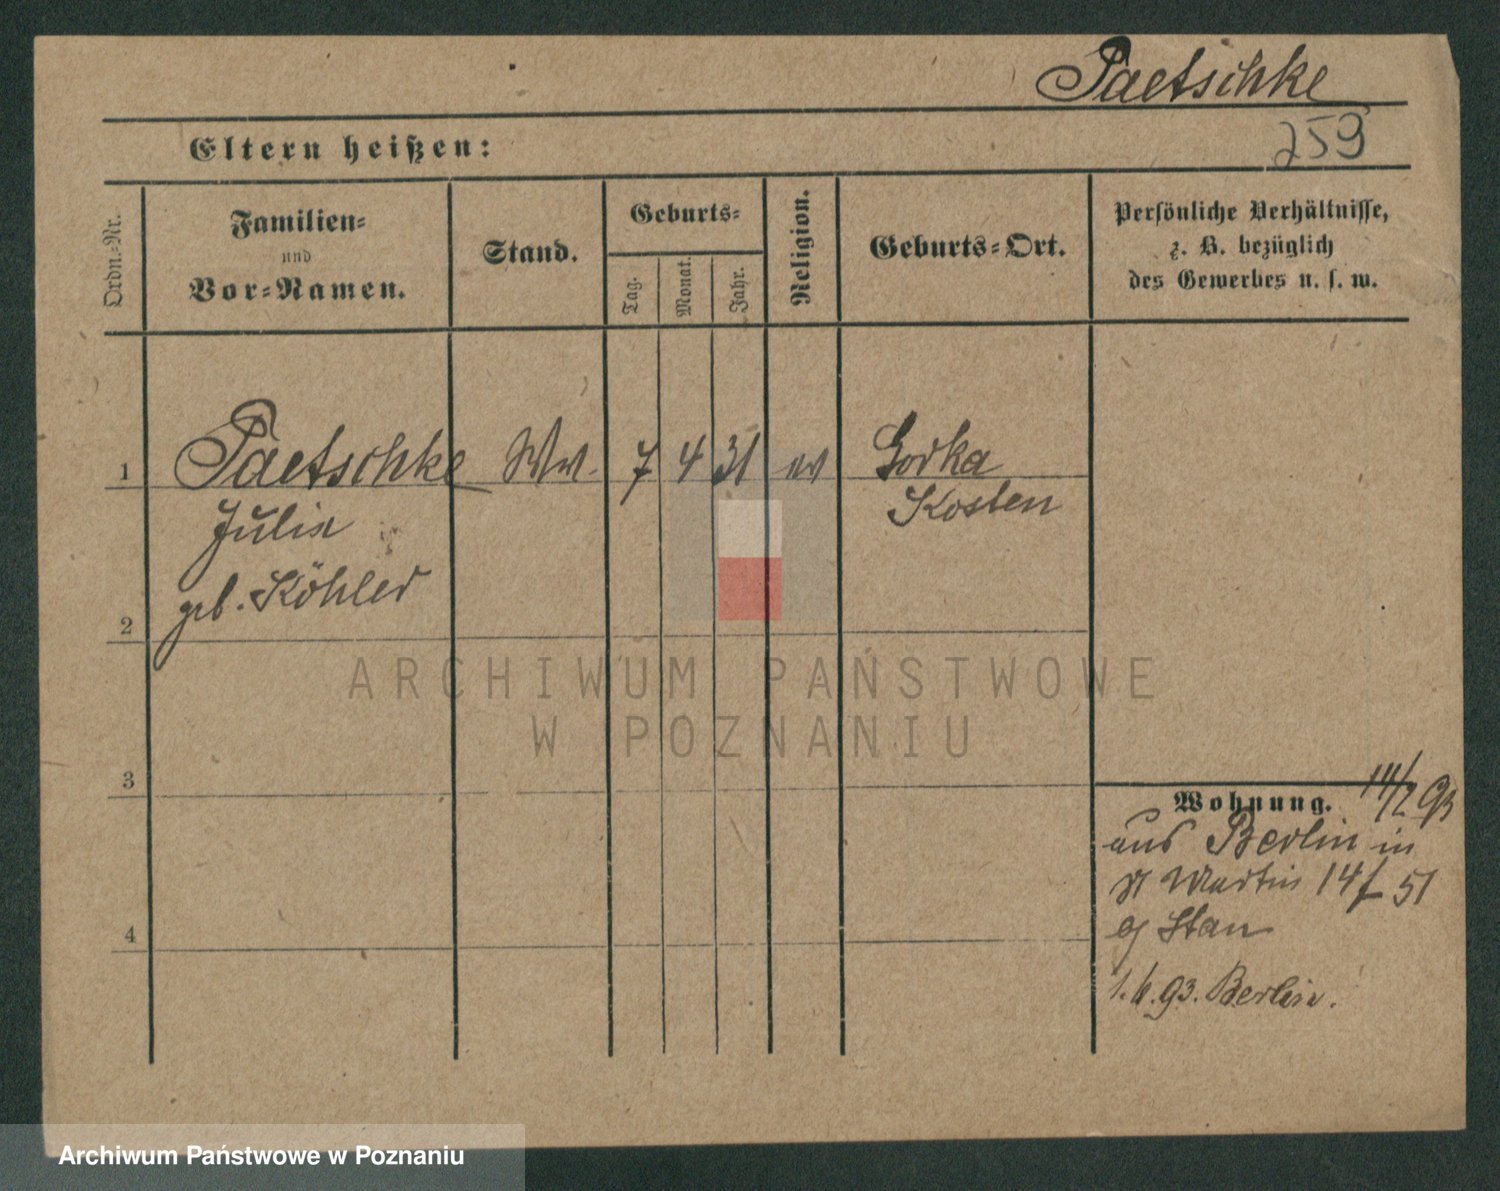 Paetschke
259
Eltern heißen:
Ordn.-Nr.
Familien-
und
Vor-Namen.
Stand.
Geburts-
Tag.
Monat.
Jahr.
Religion.
Geburts-Ort.
Persönliche Verhältnisse,
z. B. bezüglich
des Gewerbes u. s. w.
1
Paetschke Ww. 7 4 31 ev Gorka
Kosten
Julia
geb. Köhler
2
ARCHIWUM PAŃSTWOWE
W POZNANIU
3
Wohnung.
aus Berlin in
St Martin 14/ 51
Stan
4
1.6.93. Berlin.
Archiwum Państwowe w Poznaniu